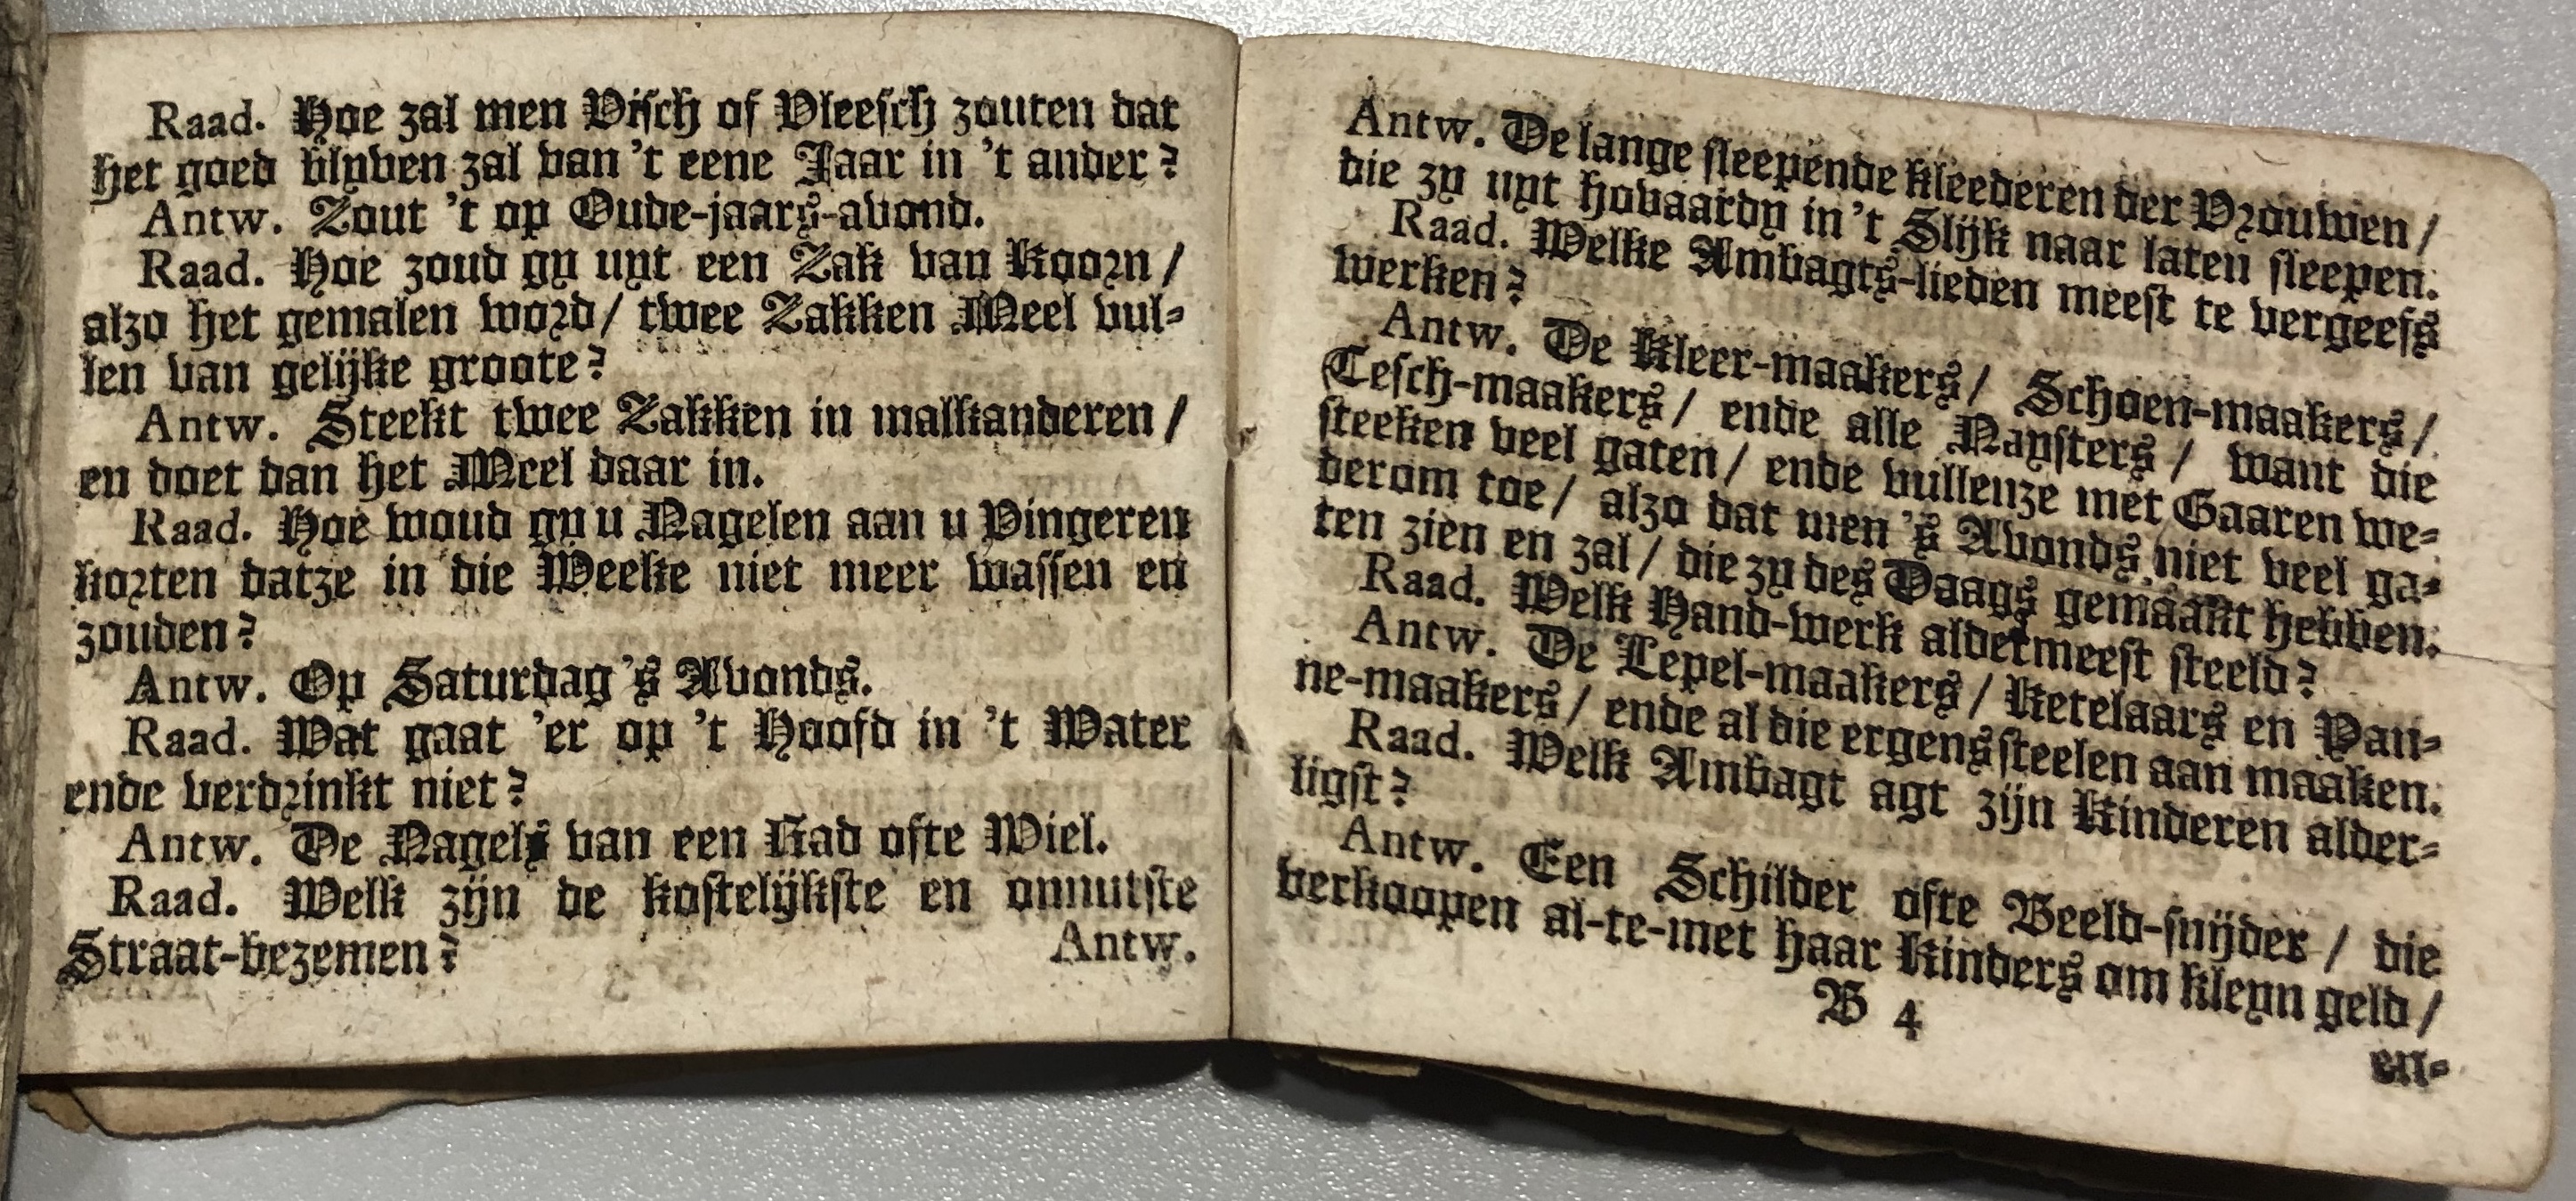 Raad. Hoe zal men Visch of Vleesch zouten dat
het goed blyven zal van 't eene Jaar in 't ander?
Antw. Zout 't op Oude-jaars-avond.
Raad. Hoe zoud gy uyt een Zak van Koorn /
alzo het gemalen word / twee Zakken Meel vul-
len van gelijke groote?
Antw. Steekt twee Zakken in malkanderen /
en doet dan het Meel daar in.
Raad. Hoe woud gy u Nagelen aan u Vingeren
korten datze in die Weeke niet meer wassen en
zouden?
Antw. Op Saturdag 's Avonds.
Raad. Wat gaat 'er op 't Hoofd in 't Water
ende verdrinkt niet?
Antw. De Nagels van een Rad ofte Wiel.
Raad. Welk zijn de kostelijkste en onnutste
Straat-bezemen?
Antw.
Antw. De lange sleepende kleederen der Vrouwen /
die zy uyt hovaardy in 't Slijk naar laten sleepen.
Raad. Welke Ambagts-lieden meest te vergeefs
werken?
Antw. De Kleer-maakers / Schoen-maakers /
Tesch-maakers / ende alle Naysters / want die
steeken veel gaten / ende vullenze met Gaaren we-
derom toe / alzo dat men 's Avonds niet veel ga-
ten zien en zal / die zy des Daags gemaakt hebben.
Raad. Welk Hand-werk aldermeest steeld?
Antw. De Lepel-maakers / Ketelaars en Pan-
ne-maakers / ende al die ergens steelen aan maaken.
Raad. Welk Ambagt agt zijn Kinderen alder-
ligst?
Antw. Een Schilder ofte Beeld-snijder / die
verkoopen al-te-met haar Kinders om kleyn geld /
B 4
en-